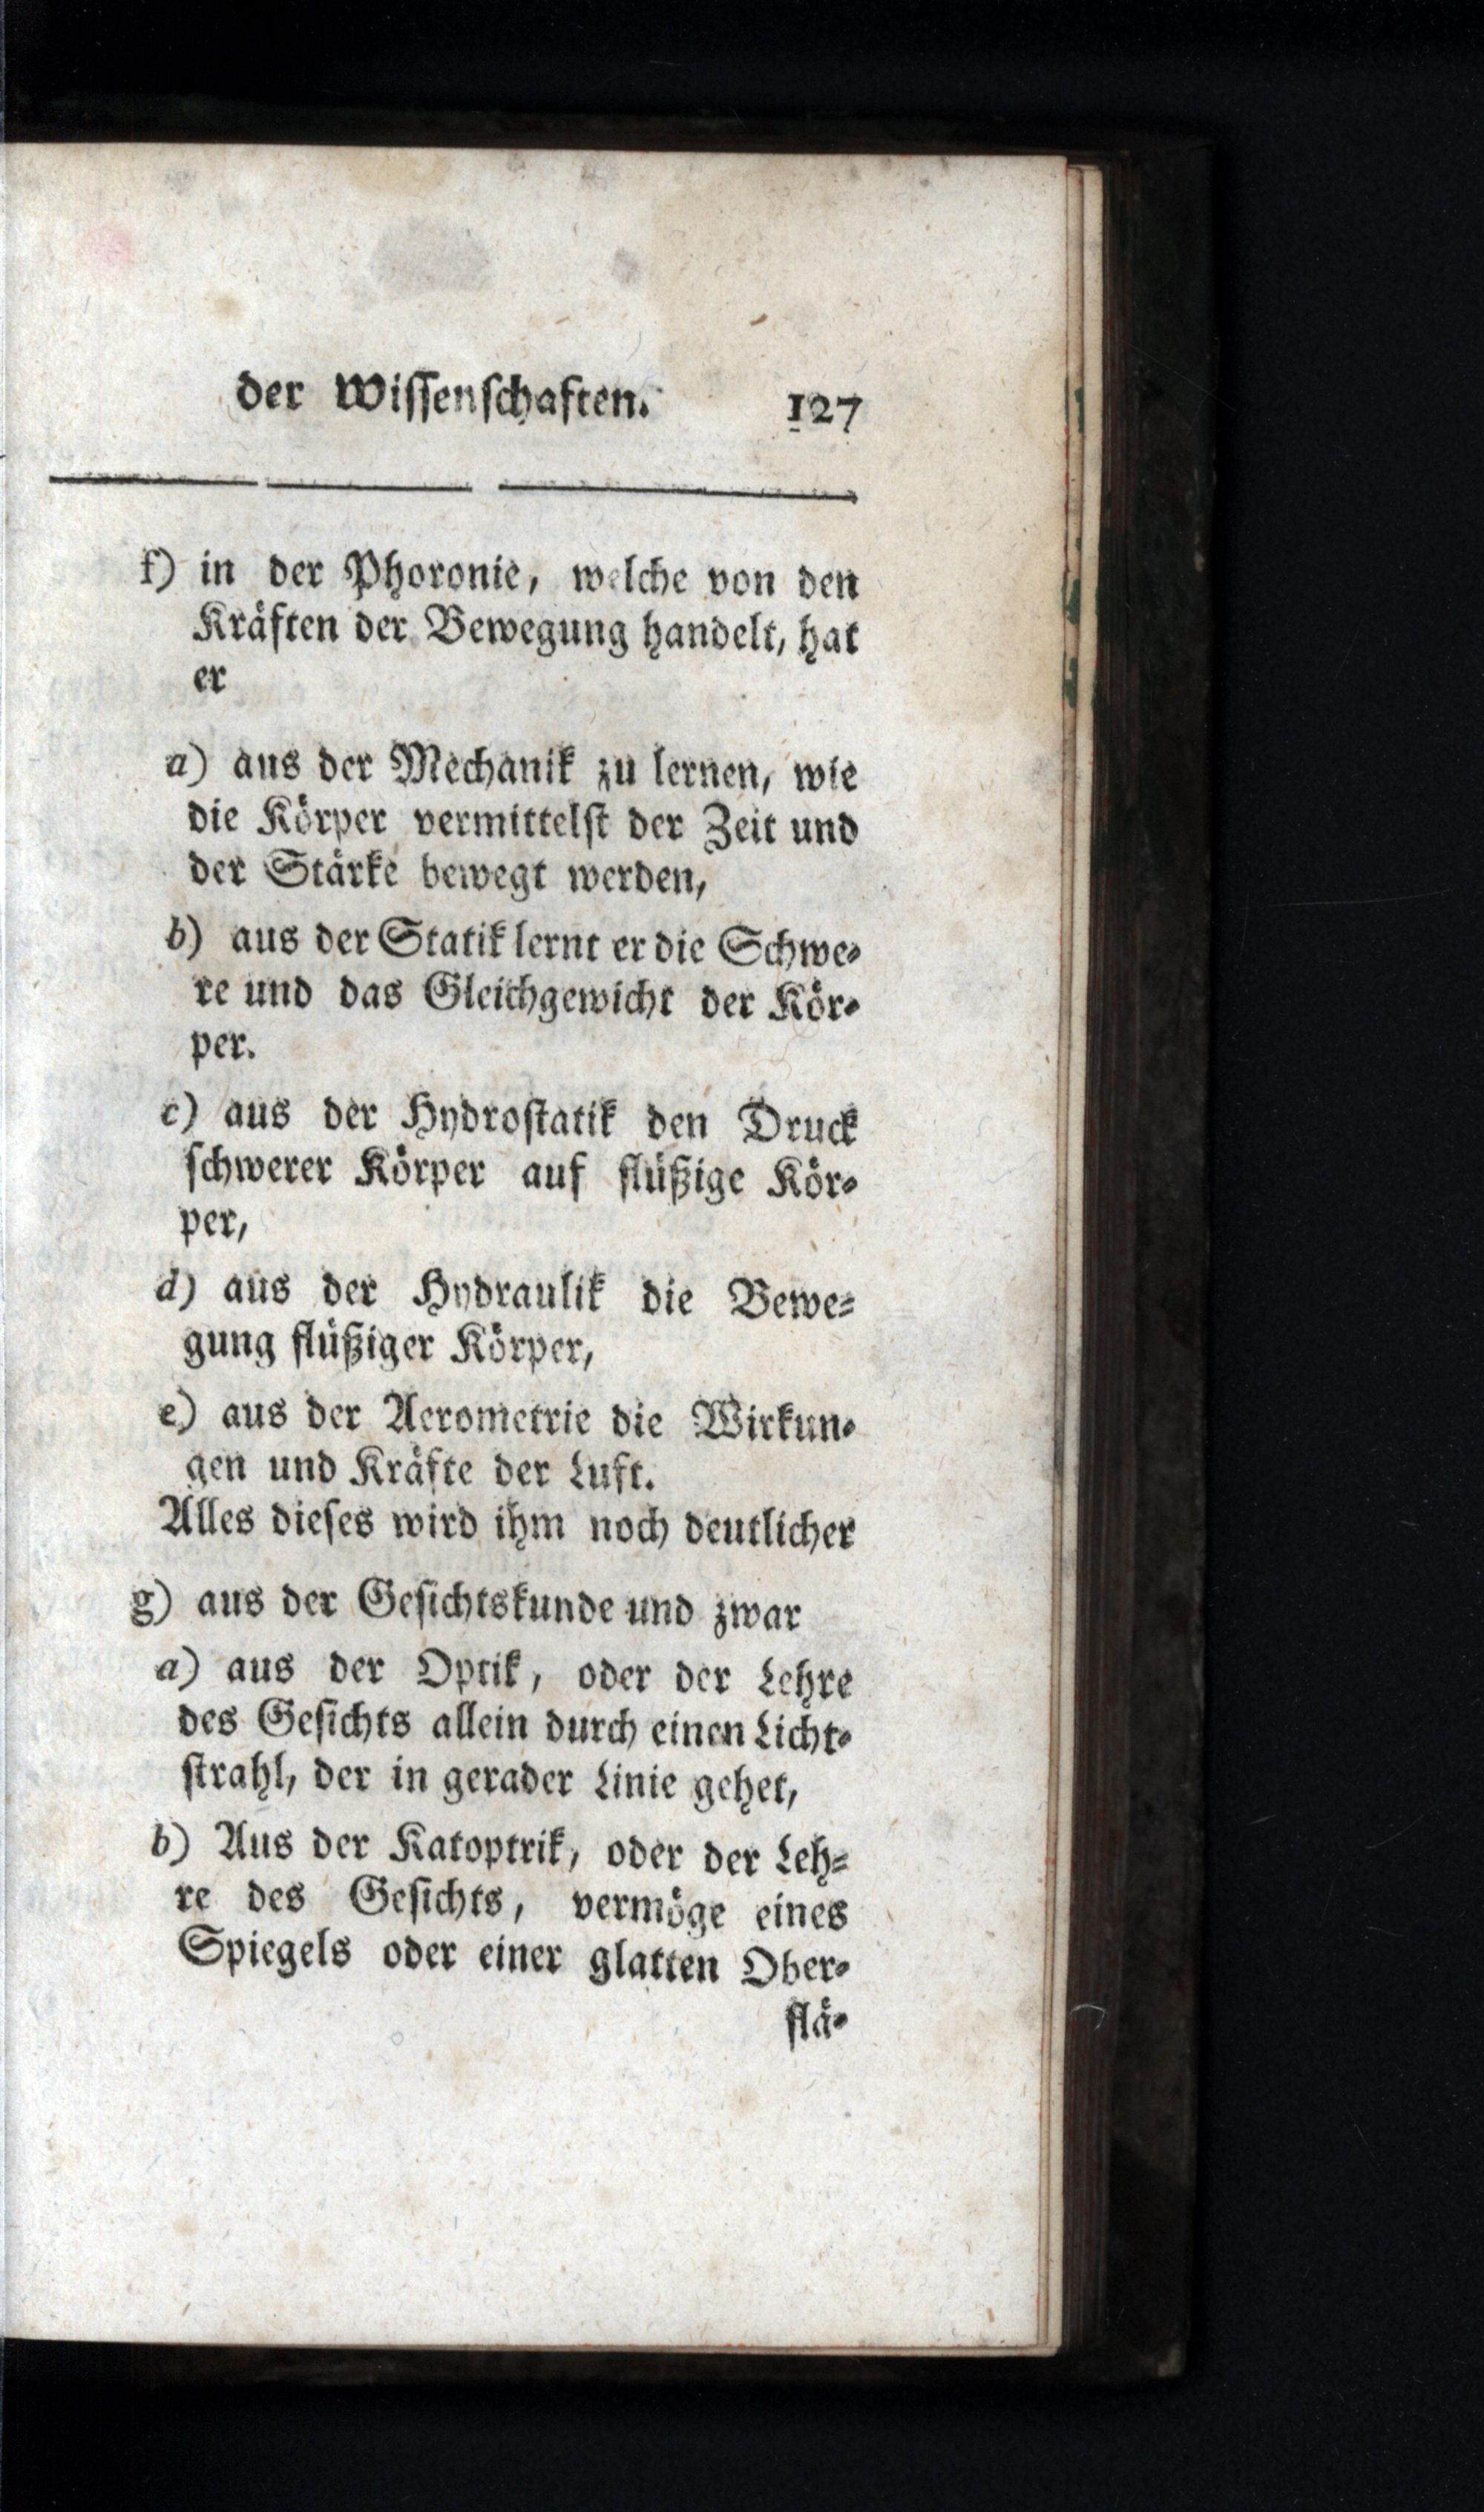 der Wissenschaften. 127
f) in der Phoronie, welche von den
Kräften der Bewegung handelt, hat
er
a) aus der Mechanik zu lernen, wie
die Körper vermittelst der Zeit und
der Stärke bewegt werden,
b) aus der Statik lernt er die Schwe-
re und das Gleichgewicht der Kör-
per.
c) aus der Hydrostatik den Druck
schwerer Körper auf flüßige Kör-
per,
d) aus der Hydraulik die Bewe-
gung flüßiger Körper,
e) aus der Aerometrie die Wirkun-
gen und Kräfte der Luft.
Alles dieses wird ihm noch deutlicher
g) aus der Gesichtskunde und zwar
a) aus der Optik, oder der Lehre
des Gesichts allein durch einen Licht-
strahl, der in gerader Linie gehet,
b) Aus der Katoptrik, oder der Leh-
re des Gesichts, vermöge eines
Spiegels oder einer glatten Ober-
flä-